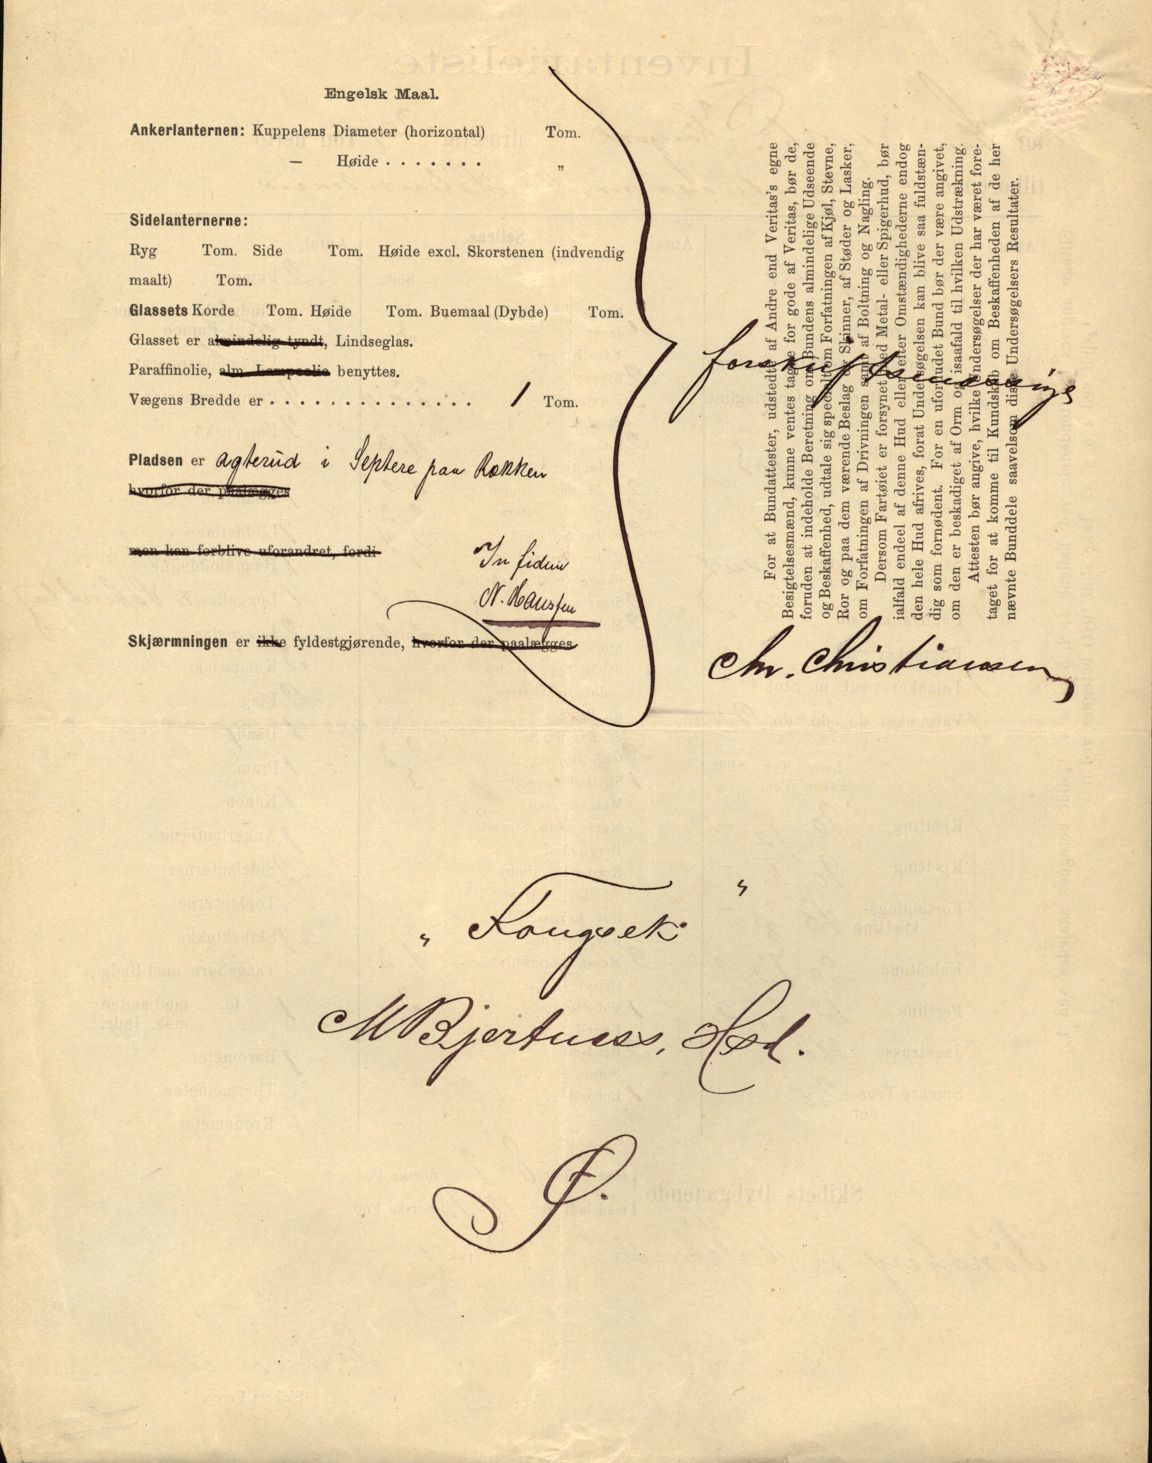 Engelsk Maal.
Ankerlanternen: Kuppelens Diameter (horizontal) Tom.
— Høide . . . . . . . „
Sidelanternerne:
Ryg Tom. Side Tom. Høide excl. Skorstenen (indvendig
maalt) Tom.
Glassets Korde Tom. Høide Tom. Buemaal (Dybde) Tom.
Glasset er almindelig tyndt, Lindseglas.
Paraffinolie, alm. Lampeolie benyttes.
Vægens Bredde er . . . . . . . . . . . . . . . 1 Tom.
Pladsen er agterud i Septere paa Rækken
hvorfor der paalægges
men kan forblive uforandret, fordi
In fidem
N. Hansen
Skjærmningen er ikke fyldestgjørende, hvorfor der paalægges
forskriftsmæssige
Chr. Christiansen
For at Bundattester, udstedte af Andre end Veritas's egne
Besigtelsesmænd, kunne ventes tagne for gode af Veritas, bør de,
foruden at indeholde Beretning om Bundens almindelige Udseende
og Beskaffenhed, udtale sig specielt om Forfatningen af Kjøl, Stevne,
Ror og paa dem værende Beslag og Skinner, af Støder og Lasker,
om Forfatningen af Drivningen samt af Boltning og Nagling.
Dersom Fartøiet er forsynet med Metal- eller Spigerhud, bør
ialfald endeel af denne Hud eller efter Omstændighederne endog
den hele Hud afrives, forat Undersøgelsen kan blive saa fuldstæn-
dig som fornødent. For en uforhudet Bund bør der være angivet,
om den er beskadiget af Orm og isaafald til hvilken Udstrækning.
Attesten bør angive, hvilke Undersøgelser der har været fore-
taget for at komme til Kundskab om Beskaffenheden af de her
nævnte Bunddele saavelsom disse Undersøgelsers Resultater.
„ Fougsek "
MBjertuess, Hsd.